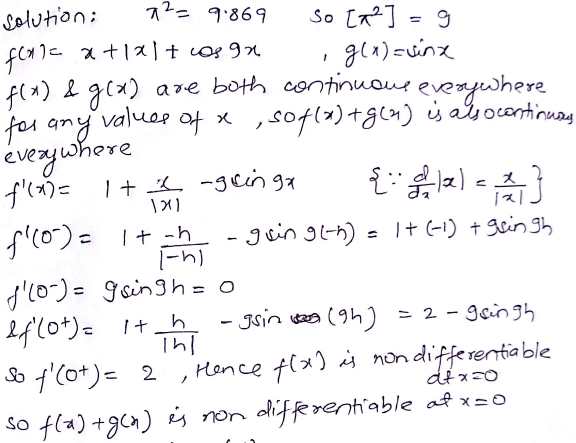 Solution: π² = 9.869 so [π²] = 9
f(x) = x + |x| + cos 9x , g(x) = sinx
f(x) & g(x) are both continuous everywhere
for any values of x , so f(x)+g(x) is also continuous
everywhere
f'(x) = 1 + x/|x| - 9sin 9x {∵ d/dx |x| = x/|x|}
f'(0⁻) = 1 + -h/|-h| - 9sin 9(-h) = 1 + (-1) + 9sin 9h
f'(0⁻) = 9sin 9h = 0
& f'(0⁺) = 1 + h/|h| - 9sin (9h) = 2 - 9sin 9h
So f'(0⁺) = 2 , Hence f(x) is non differentiable
at x=0
so f(x) + g(x) is non differentiable at x=0